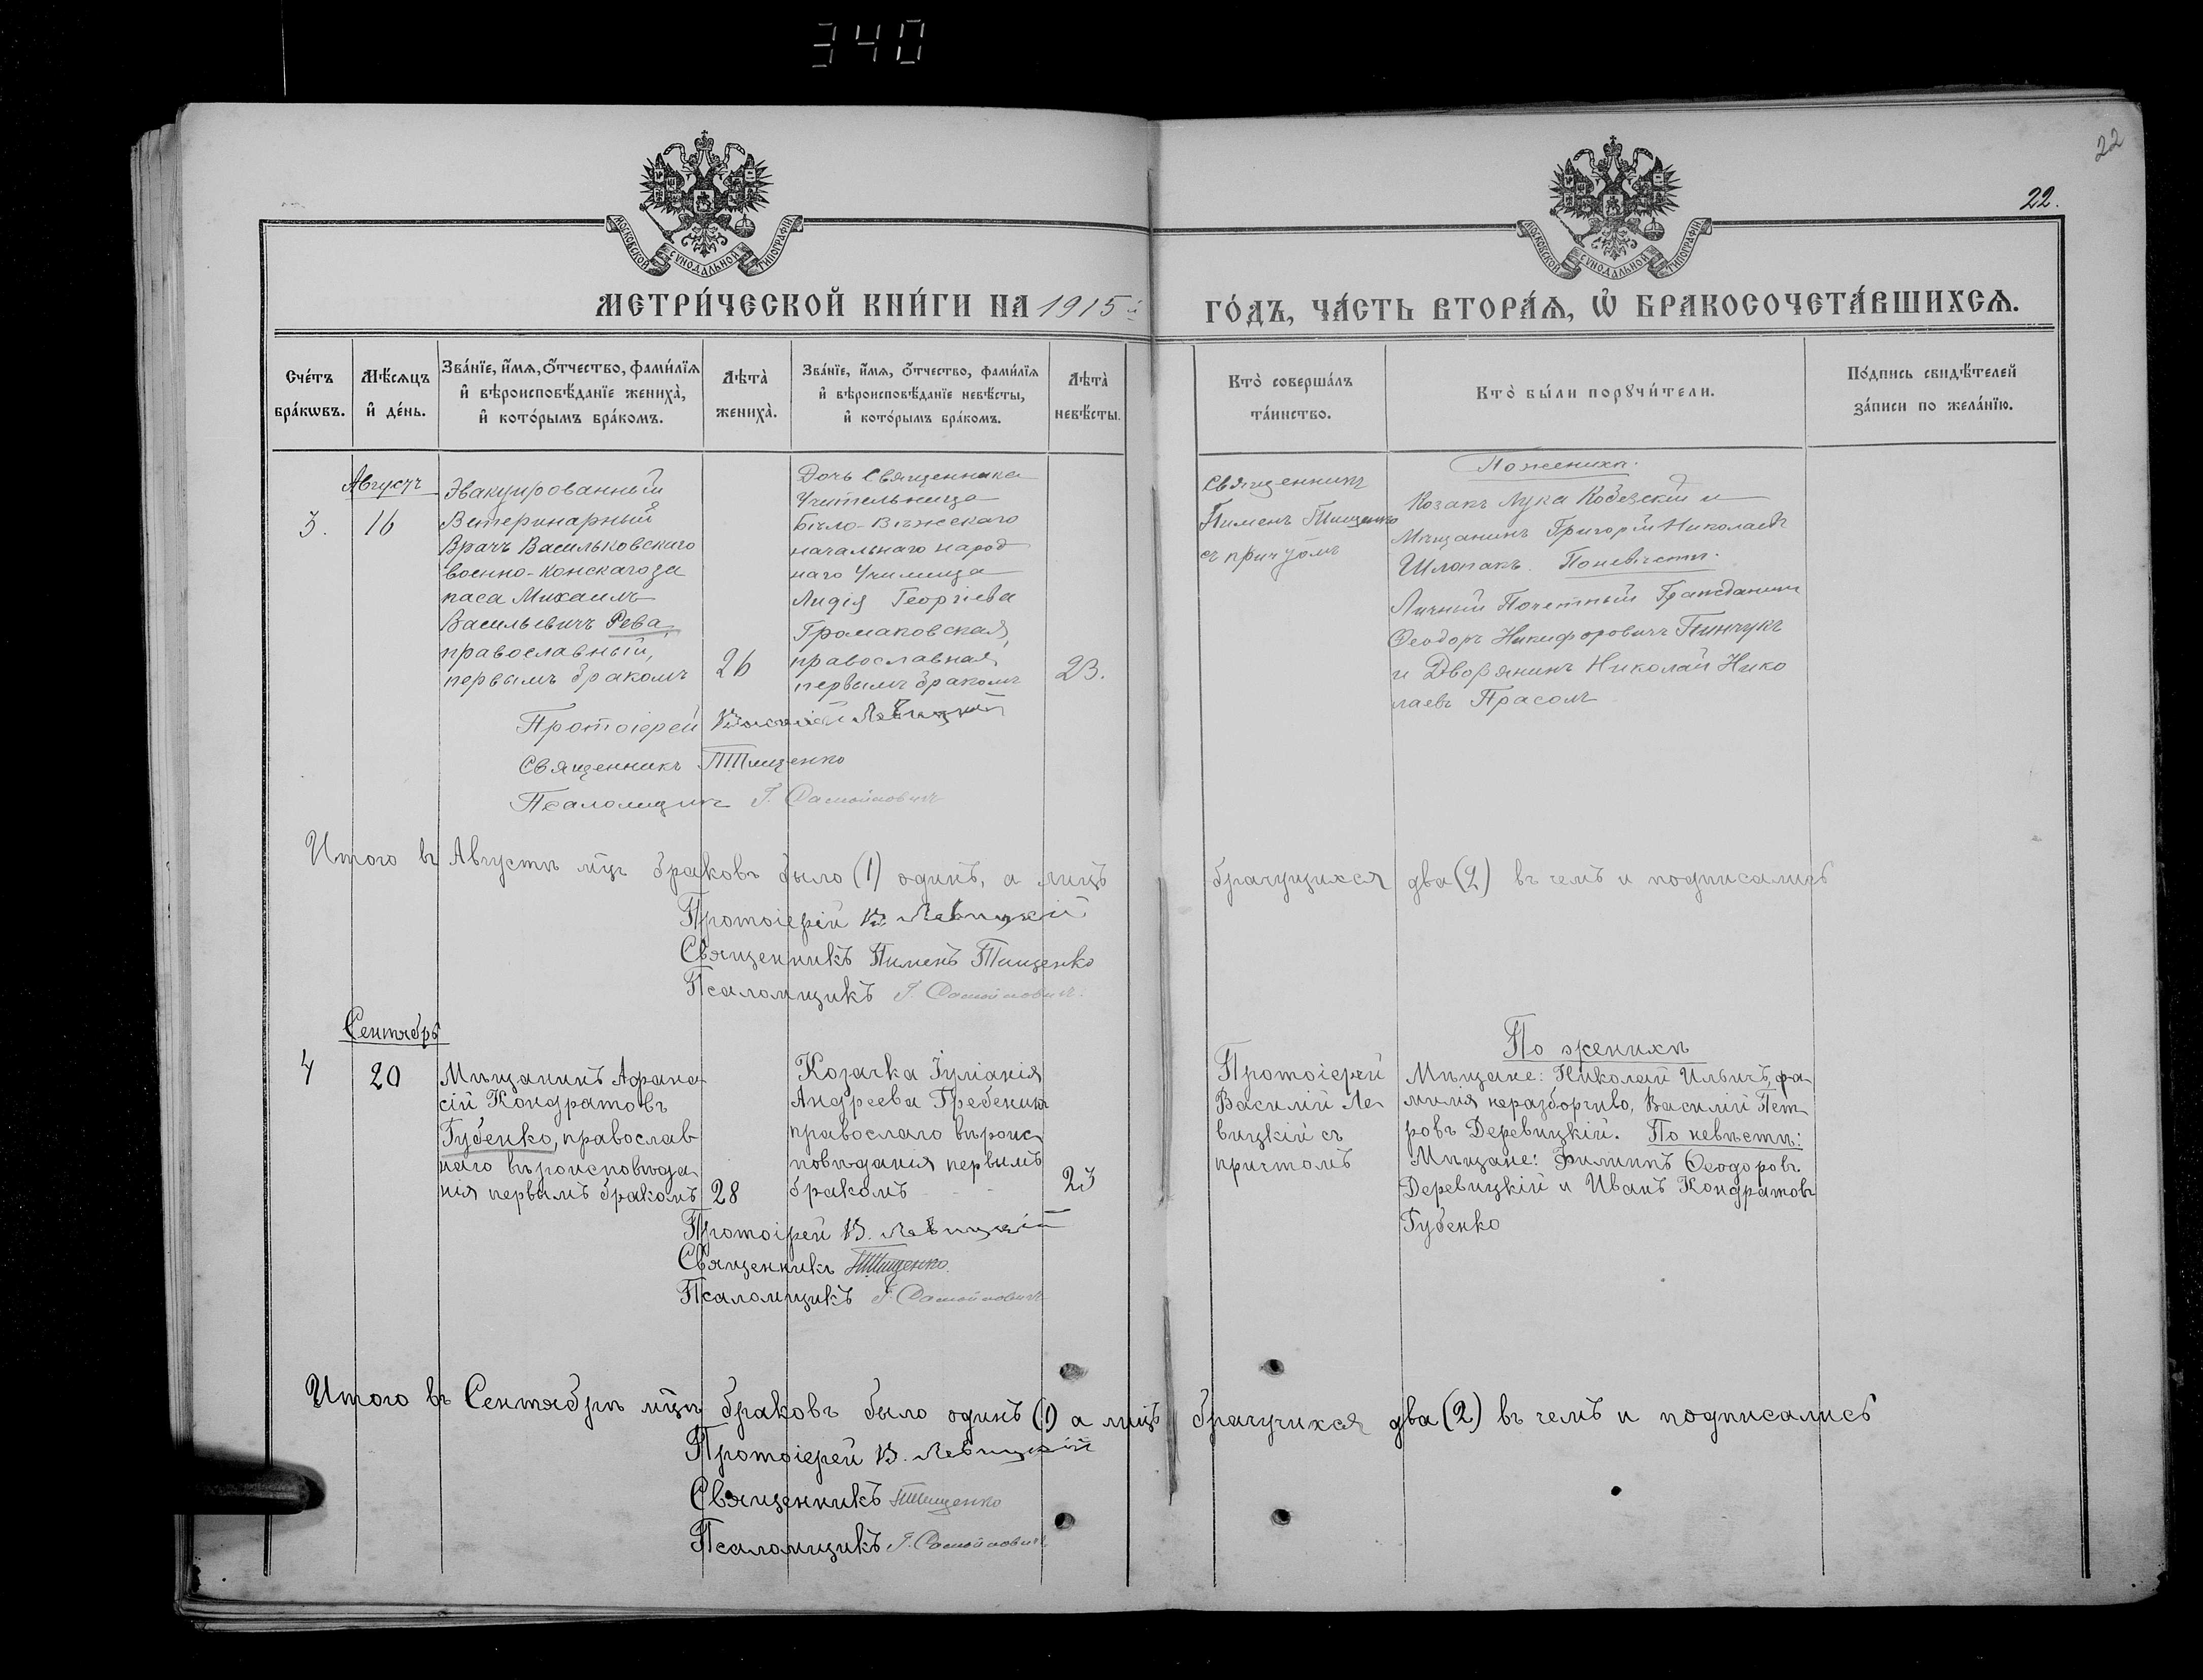 340
22
22.
МОСКОВСКОЙ СѴНОДАЛЬНОЙ ТИПОГРАФІИ
МОСКОВСКОЙ СѴНОДАЛЬНОЙ ТИПОГРАФІИ
МЕТРИ́ЧЕСКОЙ КНИ́ГИ НА 1915й ГО́ДЪ, ЧА́СТЬ ВТОРА́Ѧ, Ѡ҆ БРАКОСОЧЕТА́ВШИХСѦ.
Сче́тъ
бра́кѡвъ.
Мѣ́сѧцъ
и҆ де́нь.
Зва́нїе, и҆́мѧ, ѻ҆́тчество, фами́лїѧ
и҆ вѣроисповѣ́данїе женихà,
и҆ кото́рымъ бра́комъ.
Лѣтà
женихà.
Зва́нїе, и҆́мѧ, ѻ҆́тчество, фами́лїѧ
и҆ вѣроисповѣ́данїе невѣ́сты,
и҆ кото́рымъ бра́комъ.
Лѣтà
невѣ́сты.
Кто̀ соверша́лъ
та́инство.
Кто̀ бы́ли порꙋчи́тели.
По́дпись свидѣ́телей
за́писи по жела́нїю.
Августъ
3.
16
Эвакуированный
Ветеринарный
Врачъ Васильковскаго
военно-конскаго за
паса Михаилъ
Васильевичъ Рева,
православный,
первымъ бракомъ
26
Дочь Священника
Учительница
Бѣло-Вѣжскаго
начальнаго народ
наго Училища
Лидія Георгіева
Громаковская,
православная,
первымъ бракомъ
23.
Священникъ
Пименъ Тищенко
съ причтомъ
По женихѣ.
Козакъ Лука Кобезскій и
Мѣщанинъ Григорій Николаевъ
Шлопакъ. По невѣстѣ.
Личный Почетный Гражданинъ
Ѳеодоръ Никифоровичъ Пинчукъ
и Дворянинъ Николай Нико
лаевъ Прасолъ
Протоіерей Василій Левицкій
Священникъ П. Тищенко
Псаломщикъ Г. Самойловичъ
Итого въ Августѣ мцѣ браковъ было (1) одинъ, а лицъ брачущихся два (2) въ чемъ и подписались
Протоіерій В. Левицкій
Священникъ Пименъ Тищенко
Псаломщикъ Г. Самойловичъ
Сентябрь
4
20
Мѣщанинъ Афана
сій Кондратовъ
Губенко, православ
наго вѣроисповѣда
нія первымъ бракомъ
28
Козачка Іуліанія
Андреева Гребеникъ
православно вѣроис
повѣданія первымъ
бракомъ
23
Протоіерей
Василій Ле
вицкій съ
причтомъ
По женихѣ
Мѣщане: Николай Ильичъ, фа
милія неразборчиво, Василій Пет
ровъ Деревицкій. По невѣстѣ:
Мѣщане: Филиппъ Ѳеодоровъ
Деревицкій и Иванъ Кондратовъ
Губенко
Протоіерей В. Левицкій
Священникъ П. Тищенко
Псаломщикъ Г. Самойловичъ
Итого въ Сентябрѣ мцѣ браковъ было одинъ (1) а лицъ брачущихся два (2) въ чемъ и подписались
Протоіерей В. Левицкій
Священникъ П. Тищенко
Псаломщикъ Г. Самойловичъ